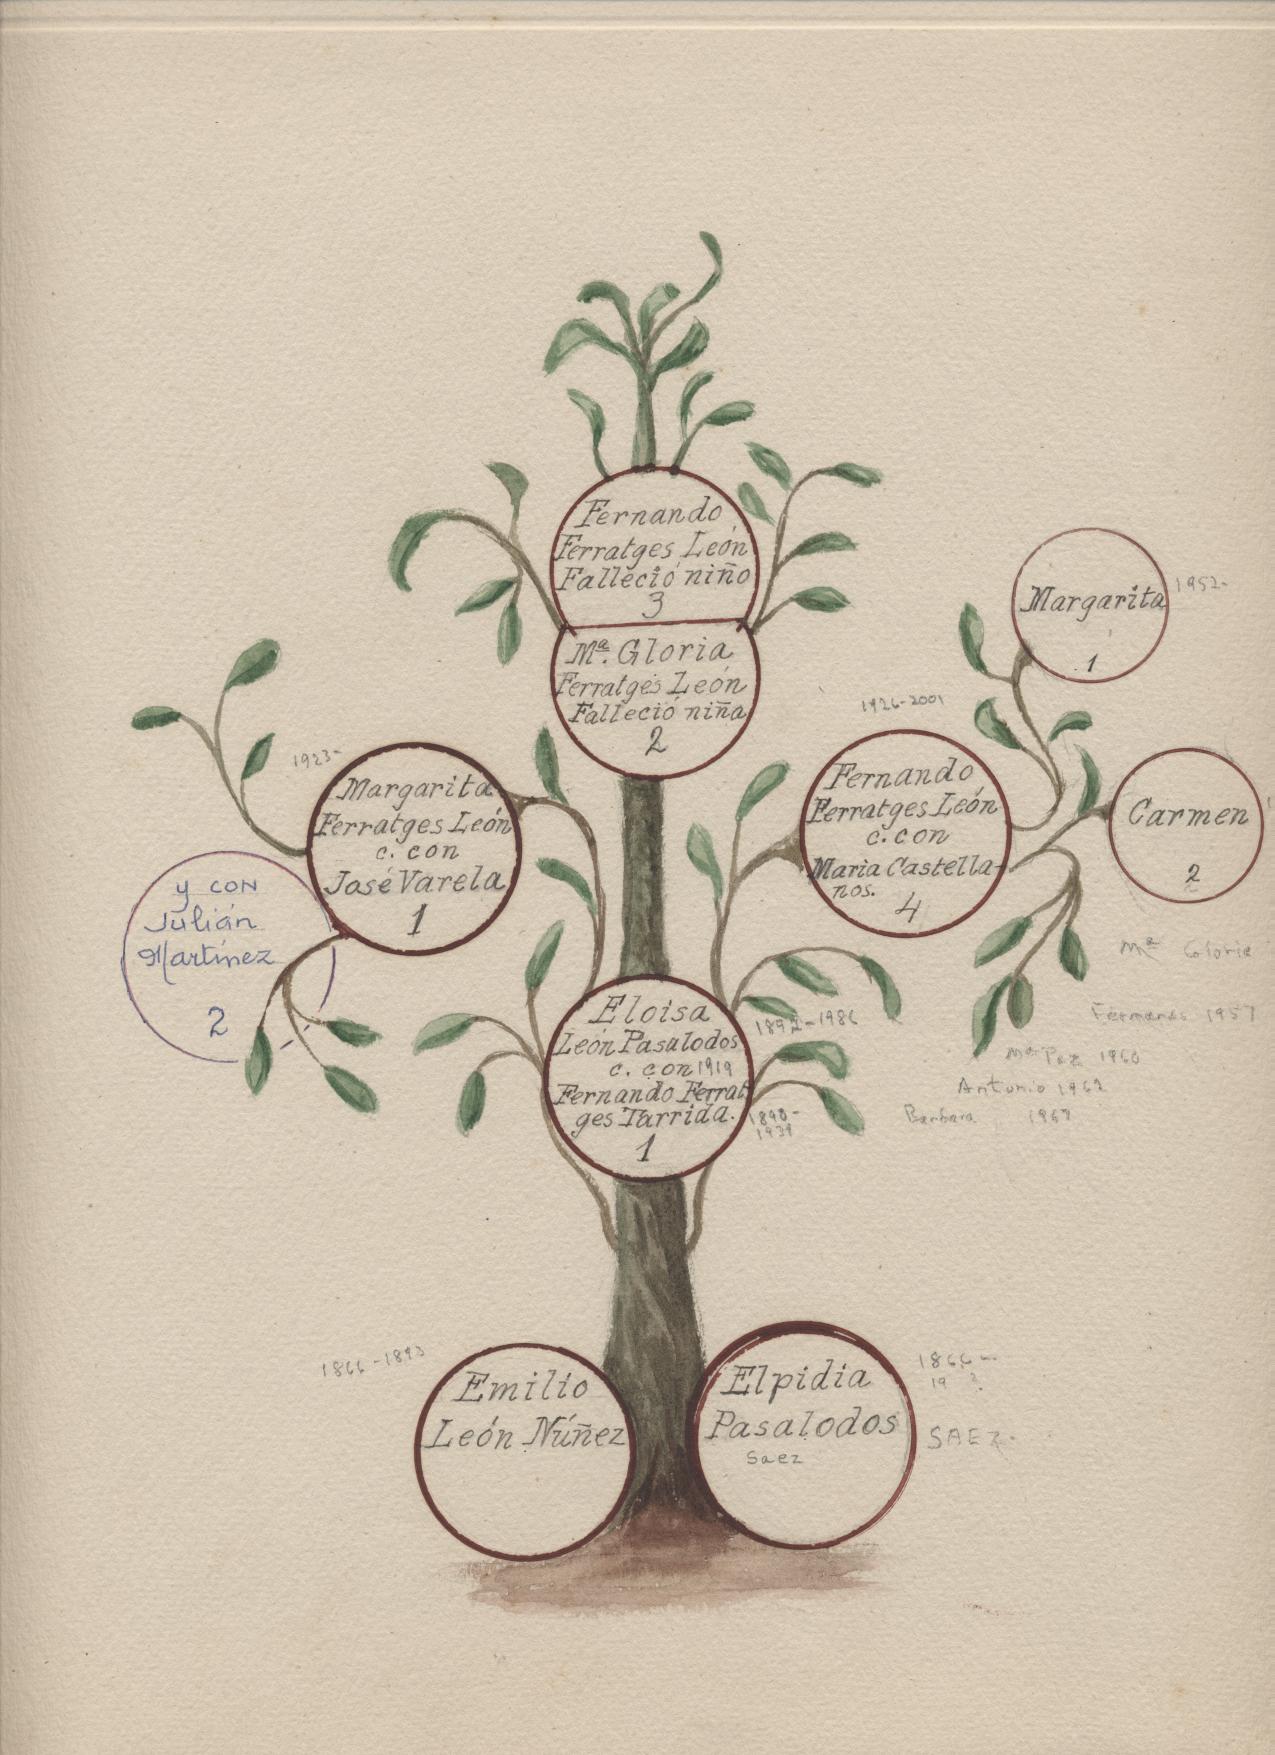 Fernando
Ferratges León
Falleció niño
3
Mª. Gloria
Ferratges León
Falleció niña
2
Margarita
1
1952-
1926-2001
1923-
Margarita
Ferratges León
c. con
José Varela
1
Fernando
Ferratges León
c. con
Maria Castella-
nos.
4
Carmen
2
y CON
Julián
Martínez
2
Mª Gloria
Fernando 1957
Mª Paz 1960
Antonio 1962
Barbara
Eloisa
León Pasalodos
c. con 1919
Fernando Ferrat
ges Tarrida.
1
1892-1986
1890-
1939
1866-1893
Emilio
León Núñez
Elpidia
Pasalodos
Saez
1866-
19 ?
SAEZ-